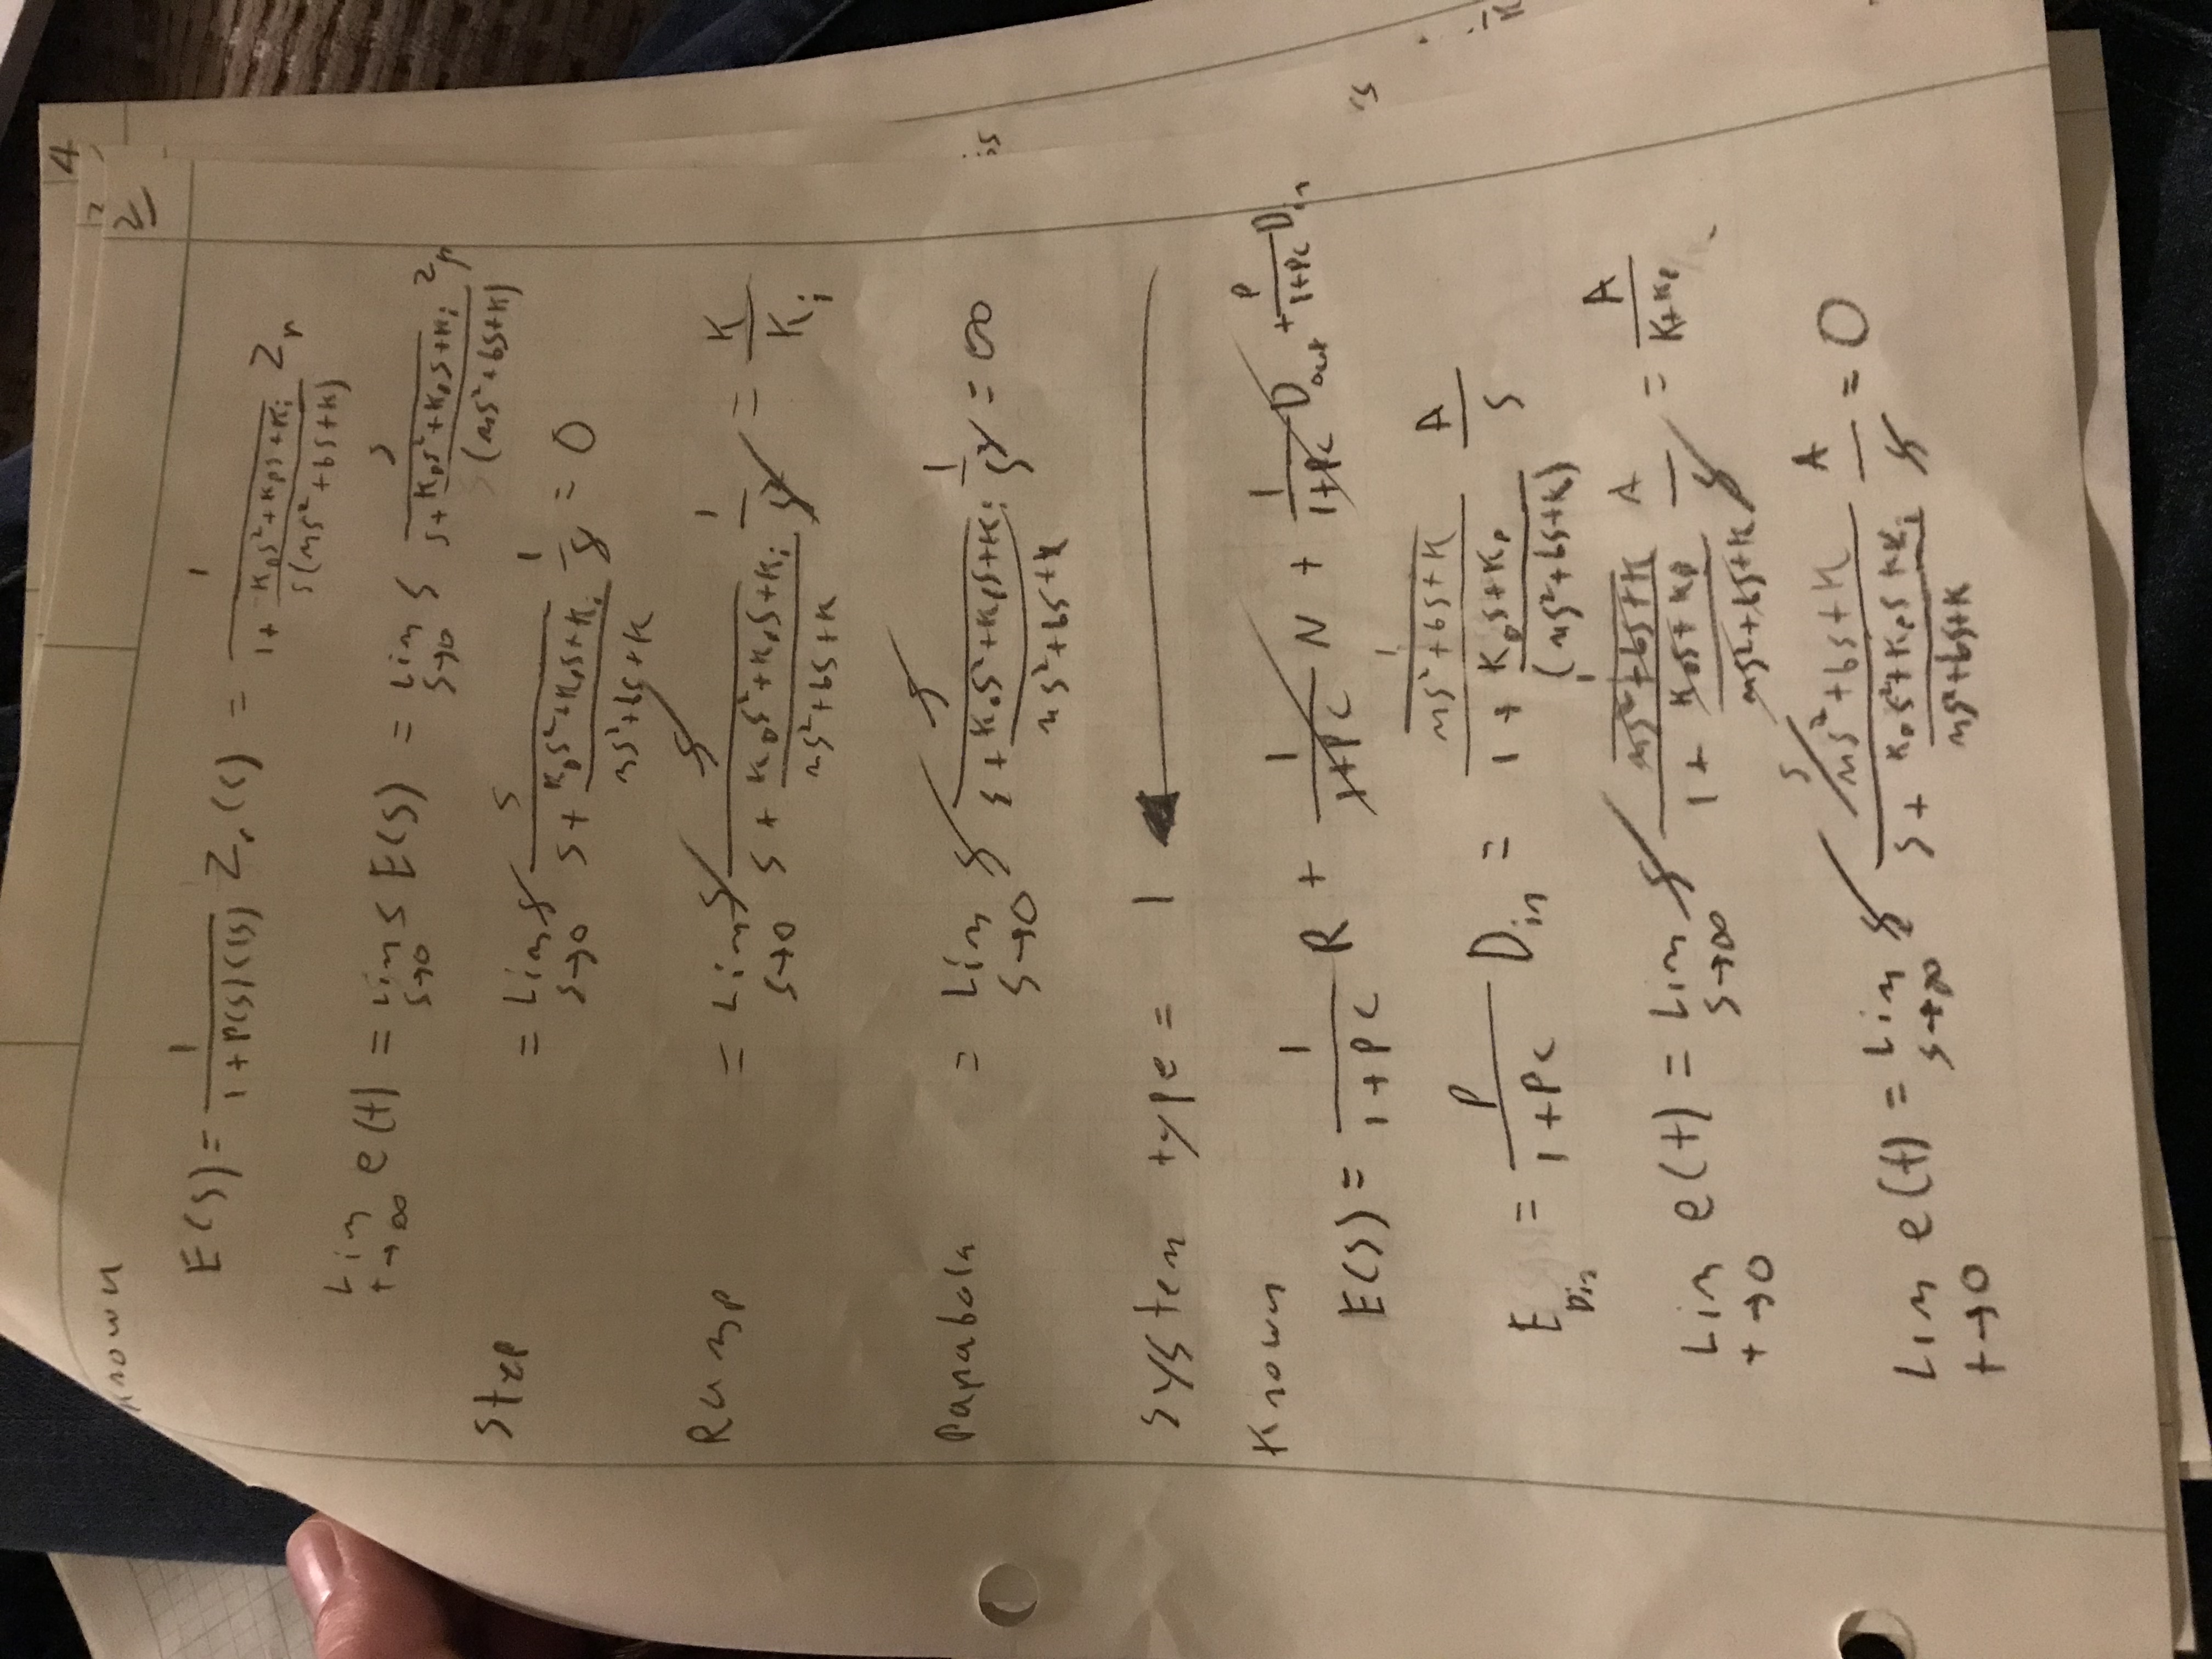 4
2
2
Known
E(s) = 1/(1+P(s)C(s)) Z_r(s) = 1/(1 + (K_D s² + K_P s + K_i)/(s(ms² + bs + K))) Z_r
Lim t→∞ e(t) = Lim s→0 s E(s) = Lim s→0 s s/(s + (K_D s² + K_P s + K_i)/(ms² + bs + K)) Z_r
Step = Lim s→0 s s/(s + (K_D s² + K_P s + K_i)/(ms² + bs + K)) 1/s = 0
Ramp = Lim s→0 s s/(s + (K_D s² + K_P s + K_i)/(ms² + bs + K)) 1/s² = K/K_i
Parabola = Lim s→0 s s/(s + (K_D s² + K_P s + K_i)/(ms² + bs + K)) 1/s³ = ∞
System type = 1
Known
E(s) = 1/(1+PC) R + 1/(1+PC) N + 1/(1+PC) D_out + P/(1+PC) D_in
E_Din = P/(1+PC) D_in = (1/(ms² + bs + K))/(1 + (K_D s + K_P)/(ms² + bs + K)) A/s
Lim t→0 e(t) = Lim s→∞ s (1/(ms² + bs + K))/(1 + (K_D s + K_P)/(ms² + bs + K)) A/s = A/(K+K_P)
Lim t→0 e(t) = Lim s→∞ s (s/(ms² + bs + K))/(s + (K_D s² + K_P s + K_i)/(ms² + bs + K)) A/s = 0